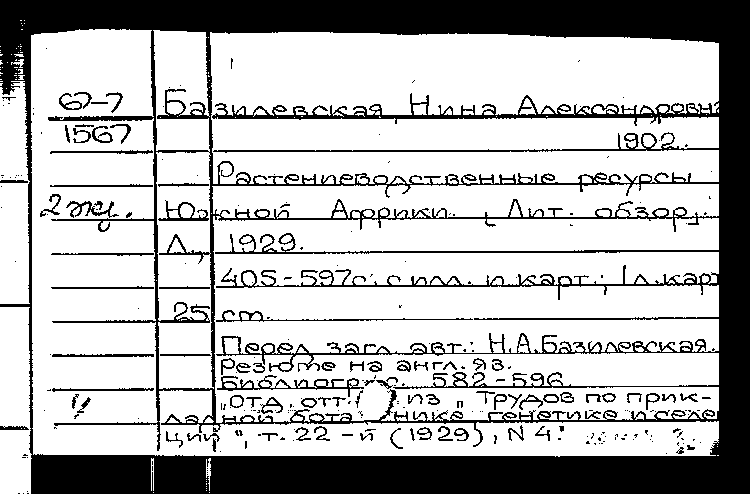 67-7 Базилевская, Нина Александровна
1567 1902.
Растениеводственные ресурсы
2 экз. Южной Африки. [Лит. обзор].
Л., 1929.
405-597 с. с илл. и карт.; 1 л. карт
25 см.
Перед загл. авт.: Н.А.Базилевская.
Резюме на англ. яз.
Библиогр. с. 582-596.
"Отд. отт. из "Трудов по прик-
ладной ботанике генетике и селек
ции", т. 22-й (1929), N 4.